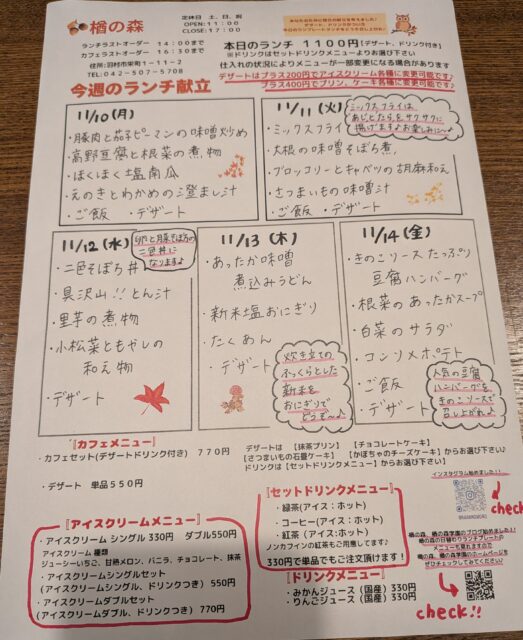 楢の森
定休日 土、日、祝
OPEN:11:00
CLOSE:17:00
ランチラストオーダー 14:00まで
カフェラストオーダー 16:30まで
住所:羽村市栄町1-11-2
TEL:042-507-5708
本日のランチ 1100円(デザート、ドリンク付き)
※ドリンクはセットドリンクメニューよりお選び下さい
仕入れの状況によりメニューが一部変更になる場合があります
デザートはプラス200円でアイスクリーム各種に変更可能です♪
プラス400円でプリン、ケーキ各種に変更可能です♪
今週のランチ献立
11/10(月)
・豚肉と茄子ピーマンの味噌炒め
・高野豆腐と根菜の煮物
・ほくほく塩南瓜
・えのきとわかめの澄まし汁
・ご飯 ・デザート
11/11(火)
ミックスフライは
あじとたらをサクサクに
揚げますよお楽しみに〜♪
・ミックスフライ
・大根の味噌そぼろ煮
・ブロッコリーとキャベツの胡麻和え
・さつまいもの味噌汁
・ご飯 ・デザート
11/12(水)
卵と豚そぼろの
二色丼に
なりますよ♪
・二色そぼろ丼
・具沢山!!とん汁
・里芋の煮物
・小松菜ともやしの
和え物
・デザート
11/13(木)
・あったか味噌
煮込みうどん
・新米塩おにぎり
・たくあん
・デザート
炊き立ての
ふっくらとした
新米を
おにぎりで
どうぞ〜♪
11/14(金)
・きのこソースたっぷり
豆腐ハンバーグ
・根菜のあったかスープ
・白菜のサラダ
・コンソメポテト
・ご飯
・デザート
人気の豆腐
ハンバーグを
きのこソースで
召し上がれ♪
『カフェメニュー』
・カフェセット(デザートドリンク付き) 770円
・デザート 単品550円
デザートは 【抹茶プリン】 【チョコレートケーキ】
【さつまいもの石畳ケーキ】 【かぼちゃのチーズケーキ】からお選び下さい♪
ドリンクは【セットドリンクメニュー】からお選び下さい♪
『アイスクリームメニュー』
・アイスクリーム シングル330円 ダブル550円
アイスクリーム 種類
ジューシーいちご、甘熟メロン、バニラ、チョコレート、抹茶
・アイスクリームシングルセット
(アイスクリームシングル、ドリンクつき) 550円
・アイスクリームダブルセット
(アイスクリームダブル、ドリンクつき) 770円
『セットドリンクメニュー』
・緑茶(アイス:ホット)
・コーヒー(アイス:ホット)
・紅茶 (アイス:ホット)
ノンカフェインの紅茶もご用意してます♪
330円で単品でもご注文頂けます!
『ドリンクメニュー』
・みかんジュース(国産) 330円
・りんごジュース(国産) 330円
インスタグラム始めました!!
check
楢の森、楢の森学園のブログ始めました!
楢の森の日替わりランチプレートの
メニューも見れますので
楢の森、楢の森学園のホームページを
ぜひチェックしてみてください!
check!!